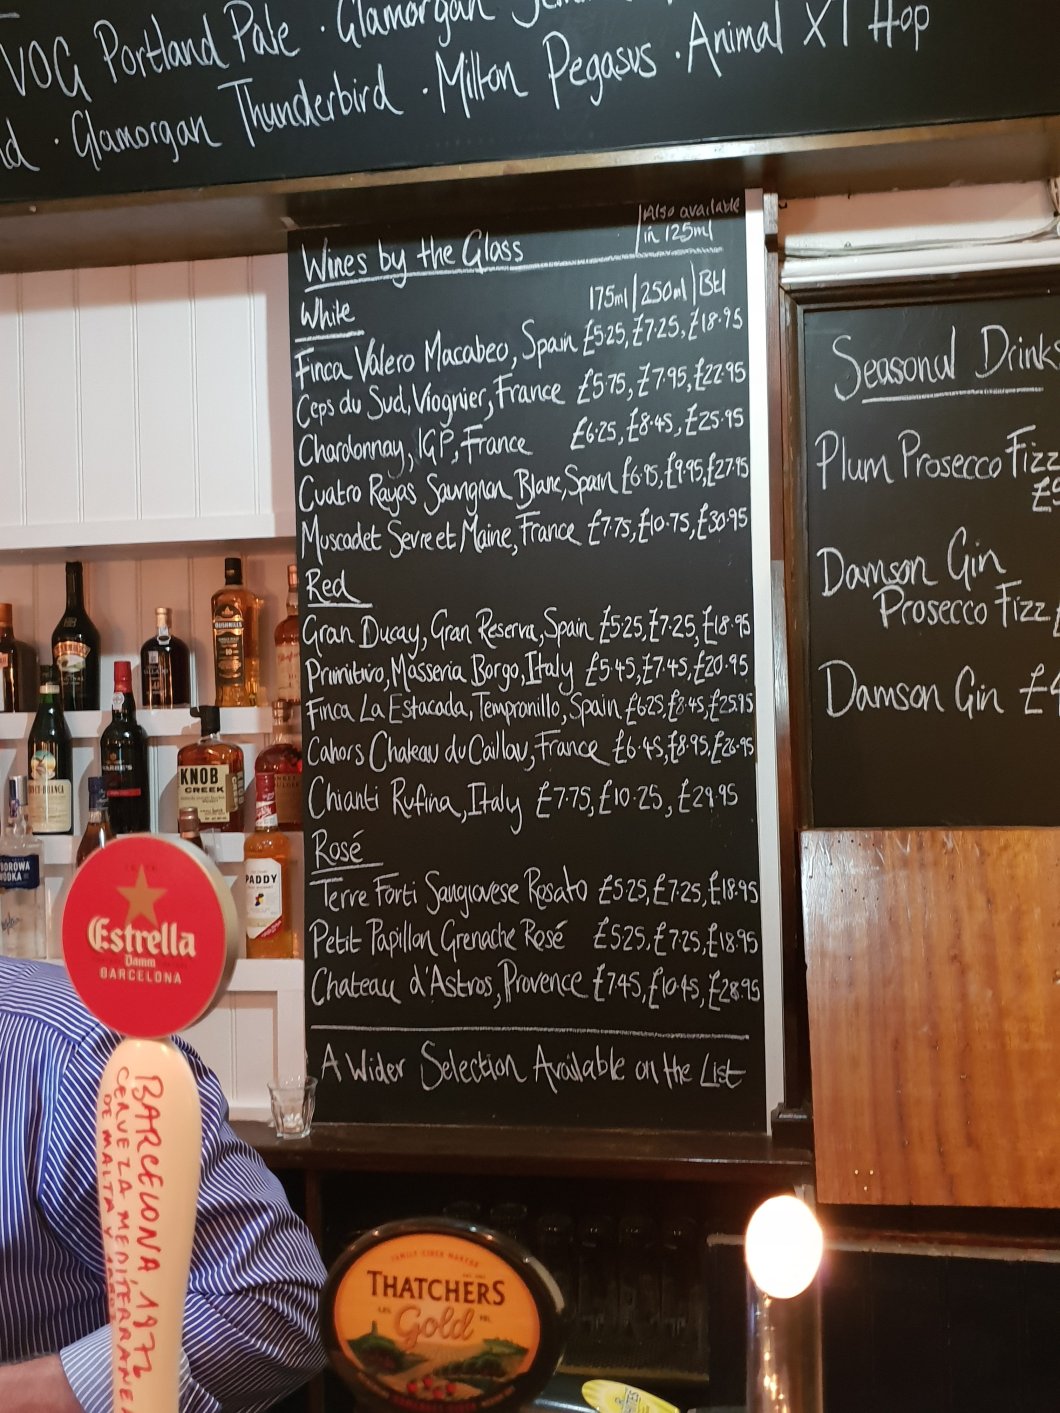 VOG Portland Pale · Glamorgan
· Glamorgan Thunderbird · Milton Pegasus · Animal XT Hop
Wines by the Glass
Also available
in 125ml
White
175ml | 250ml | Btl
Finca Valero Macabeo, Spain £5·25, £7·25, £18·95
Ceps du Sud, Viognier, France £5·75, £7·95, £22·95
Chardonnay, IGP, France £6·25, £8·45, £25·95
Cuatro Rayas Sauvignon Blanc, Spain £6·95, £9·95, £27·95
Muscadet Sevre et Maine, France £7·75, £10·75, £30·95
Red
Gran Ducay, Gran Reserva, Spain £5·25, £7·25, £18·95
Primitivo, Masseria Borgo, Italy £5·45, £7·45, £20·95
Finca La Estacada, Tempranillo, Spain £6·25, £8·45, £25·95
Cahors Chateau du Caillau, France £6·45, £8·95, £26·95
Chianti Rufina, Italy £7·75, £10·25, £29·95
Rosé
Terre Forti Sangiovese Rosato £5·25, £7·25, £18·95
Petit Papillon Grenache Rosé £5·25, £7·25, £18·95
Chateau d'Astros, Provence £7·45, £10·45, £28·95
A Wider Selection Available on the List
Seasonal Drinks
Plum Prosecco Fizz
Damson Gin
Prosecco Fizz
Damson Gin
BUSHMILLS
KNOB
CREEK
PADDY
VODKA
Estrella
Damm
BARCELONA
BARCELONA 1972
CERVEZA MEDITERRANE
DE MALTA Y
FAMILY CIDER MAKERS
THATCHERS
Gold